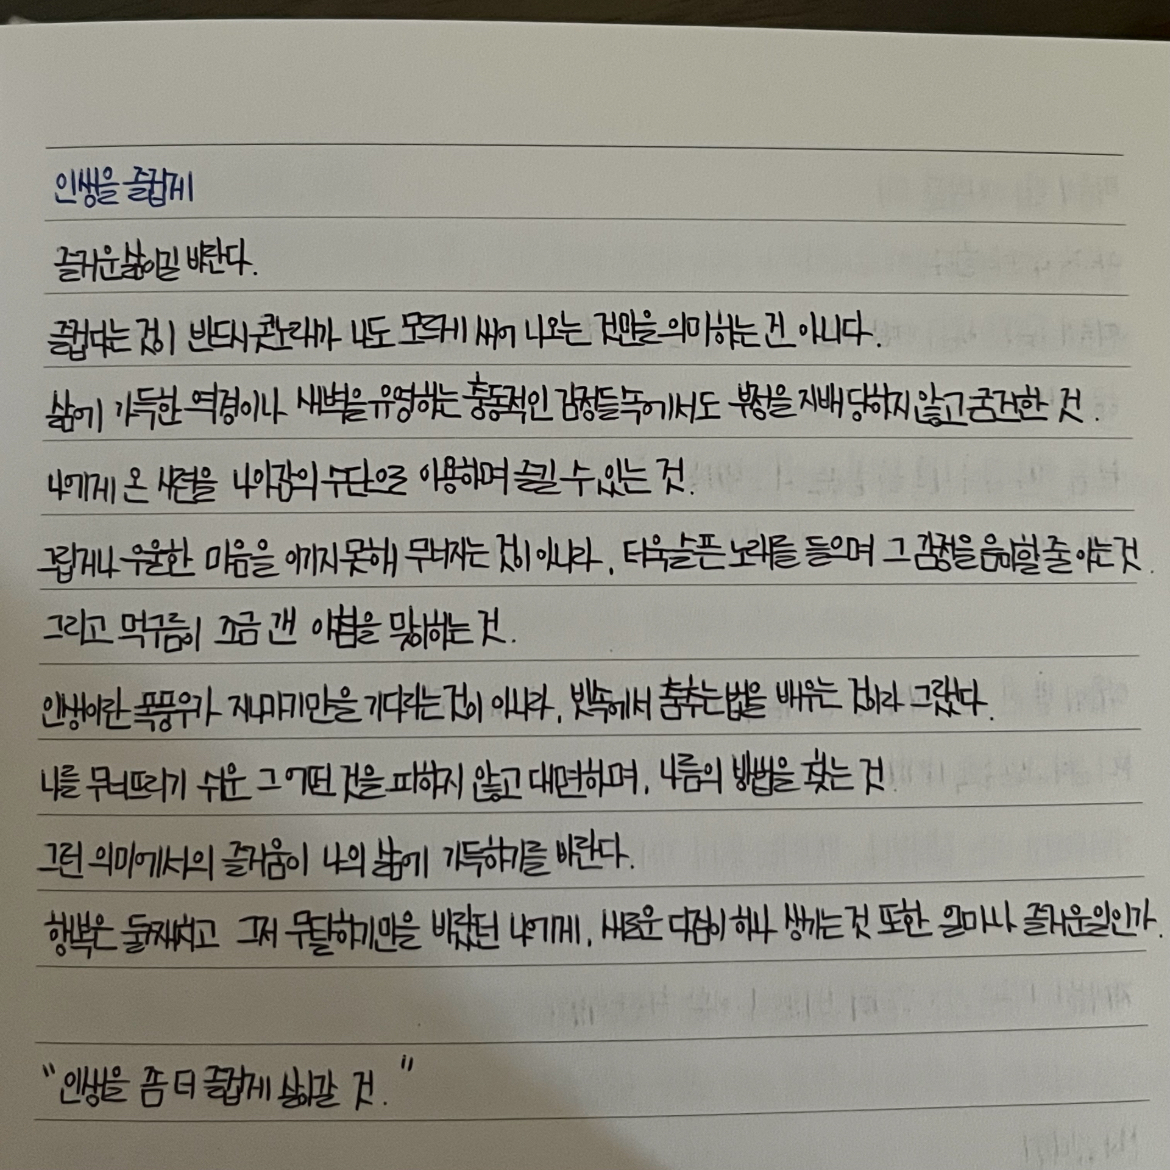 인생을 즐겁게
즐거운 삶이길 바란다.
즐겁다는 것이 반드시 콧노래가 나도 모르게 새어 나오는 것만을 의미하는 건 아니다.
삶에 가득한 역경이나 새벽을 유영하는 충동적인 감정들 속에서도 부정을 지배 당하지 않고 굳건한 것.
나에게 온 시련을 나아감의 수단으로 이용하며 즐길 수 있는 것.
그립거나 우울한 마음을 이기지 못해 무너지는 것이 아니라, 더욱 슬픈 노래를 들으며 그 감정을 음미할 줄 아는 것.
그리고 먹구름이 조금 갠 아침을 맞이하는 것.
인생이란 폭풍우가 지나가기만을 기다리는 것이 아니라, 빗속에서 춤추는 법을 배우는 것이라 그랬다.
나를 무너뜨리기 쉬운 그 어떤 것을 피하지 않고 대면하며, 나름의 방법을 찾는 것.
그런 의미에서의 즐거움이 나의 삶에 가득하기를 바란다.
행복은 둘째치고 그저 무탈하기만을 바랐던 나에게, 새로운 다짐이 하나 생기는 것 또한 얼마나 즐거운 일인가.
"인생을 좀 더 즐겁게 살아갈 것."